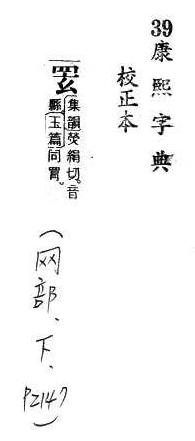 39 康熙字典
校正本
集韻熒絹切。音
縣。玉篇同罥。
(网部、下、P2147)